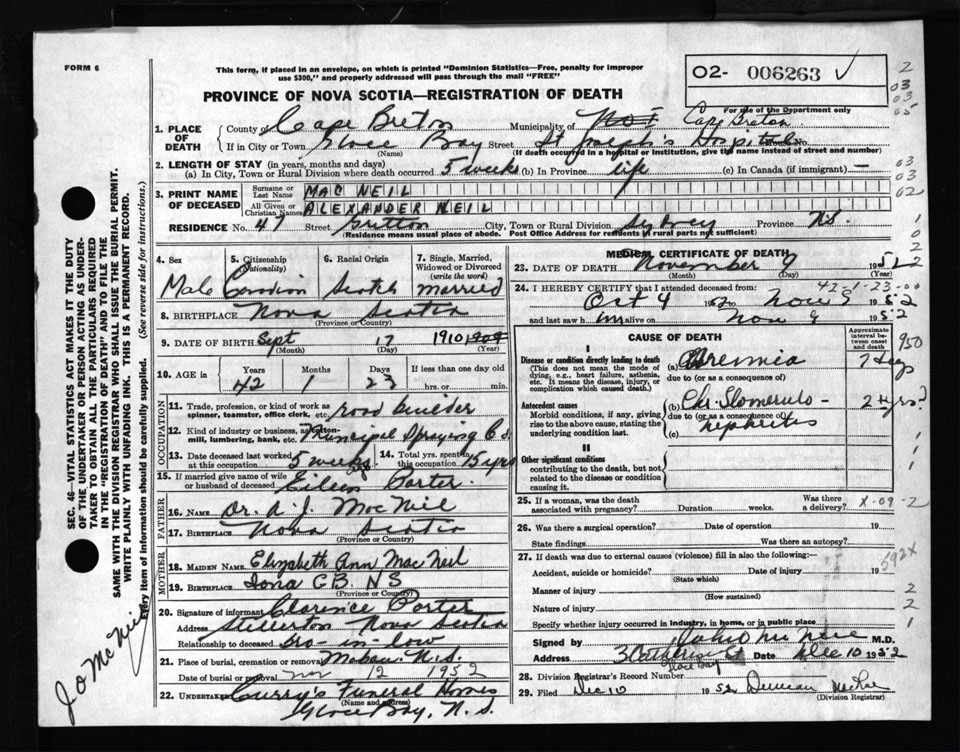 FORM 6
This form, if placed in an envelope, on which is printed "Dominion Statistics—Free, penalty for improper
use $300," and properly addressed will pass through the mail "FREE"
O2- 006263 ✓
For use of the Department only
PROVINCE OF NOVA SCOTIA—REGISTRATION OF DEATH
1. PLACE OF DEATH
County of Cape Breton Municipality of Cape Breton
If in City or Town Glace Bay Street St Joseph's Hospital No.
(Name) (If death occurred in a hospital or institution, give the name instead of street and number)
2. LENGTH OF STAY (in years, months and days)
(a) In City, Town or Rural Division where death occurred 5 weeks (b) In Province life (c) In Canada (if immigrant) —
3. PRINT NAME OF DECEASED
Surname or Last Name MAC NEIL
All Given or Christian Names ALEXANDER NEIL
RESIDENCE No. 47 Street Sutton City, Town or Rural Division Sydney Province N.S.
(Residence means usual place of abode. Post Office Address for residents in rural parts not sufficient)
4. Sex Male
5. Citizenship (Nationality) Canadian
6. Racial Origin Scotch
7. Single, Married, Widowed or Divorced (write the word) married
8. BIRTHPLACE Nova Scotia
(Province or Country)
9. DATE OF BIRTH Sept 17 1910 1909
(Month) (Day) (Year)
10. AGE in Years Months Days If less than one day old
42 1 23 hrs. or min.
OCCUPATION
11. Trade, profession, or kind of work as spinner, teamster, office clerk, etc. road builder
12. Kind of industry or business, as cotton-mill, lumbering, bank, etc. Municipal Spraying Co.
13. Date deceased last worked at this occupation 5 weeks
14. Total yrs. spent in this occupation 15 yrs
15. If married give name of wife or husband of deceased Eileen Porter
FATHER
16. NAME Dr. A. J. MacNeil
17. BIRTHPLACE Nova Scotia
(Province or Country)
MOTHER
18. MAIDEN NAME Elizabeth Ann MacNeil
19. BIRTHPLACE Iona C.B. N.S
(Province or Country)
20. Signature of informant Clarence Porter
Address Stellerton Nova Scotia
Relationship to deceased bro-in-law
21. Place of burial, cremation or removal Mabou. N.S.
Date of burial or removal Nov 12 1952
22. UNDERTAKER Curry's Funeral Homes
(Name and address)
Glace Bay, N.S.
MEDICAL CERTIFICATE OF DEATH
23. DATE OF DEATH November 9 1952
(Month) (Day) (Year)
24. I HEREBY CERTIFY that I attended deceased from:
Oct 4 1952 to Nov 9 1952
and last saw him alive on Nov 9 1952
CAUSE OF DEATH
Approximate interval between onset and death
I
Disease or condition directly leading to death
(This does not mean the mode of dying, e.g., heart failure, asthenia, etc. It means the disease, injury, or complication which caused death.)
(a) Uremia 7 days
due to (or as a consequence of)
Antecedent causes
Morbid conditions, if any, giving rise to the above cause, stating the underlying condition last.
(b) Chr. Glomerulo- 2 yrs?
due to (or as a consequence of)
(c) nephritis
II
Other significant conditions
contributing to the death, but not related to the disease or condition causing it.
25. If a woman, was the death associated with pregnancy? Duration weeks. Was there a delivery?
26. Was there a surgical operation? Date of operation 19
State findings Was there an autopsy?
27. If death was due to external causes (violence) fill in also the following:—
Accident, suicide or homicide? Date of injury 19
(State which)
Manner of injury
(How sustained)
Nature of injury
Specify whether injury occurred in industry, in home, or in public place
Signed by M.D.
Address Date Dec 10 1952
Glace Bay
28. Division Registrar's Record Number
29. Filed Dec 10 1952 Duncan
(Division Registrar)
SEC. 46—VITAL STATISTICS ACT MAKES IT THE DUTY
OF THE UNDERTAKER OR PERSON ACTING AS UNDER-
TAKER TO OBTAIN ALL THE PARTICULARS REQUIRED
IN THE "REGISTRATION OF DEATH" AND TO FILE THE
SAME WITH THE DIVISION REGISTRAR WHO SHALL ISSUE THE BURIAL PERMIT.
WRITE PLAINLY WITH UNFADING INK. THIS IS A PERMANENT RECORD.
Every item of information should be carefully supplied. (See reverse side for instructions.)